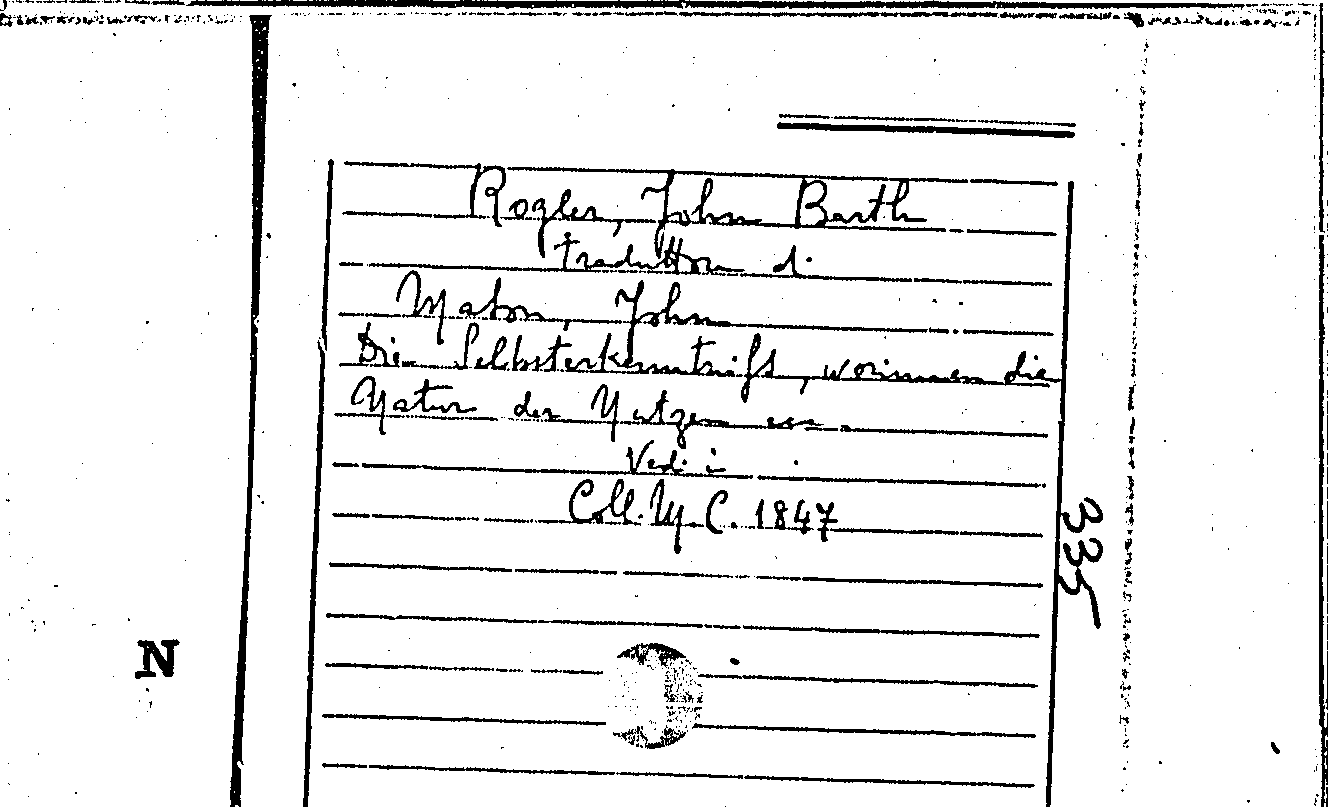 Rogler, John Barth
traduttore di
Mason, John
Die Selbsterkenntniss, worinnen die
Natur der Nutzen ecc.
Vedi i
Coll. M. C. 1847
335
N